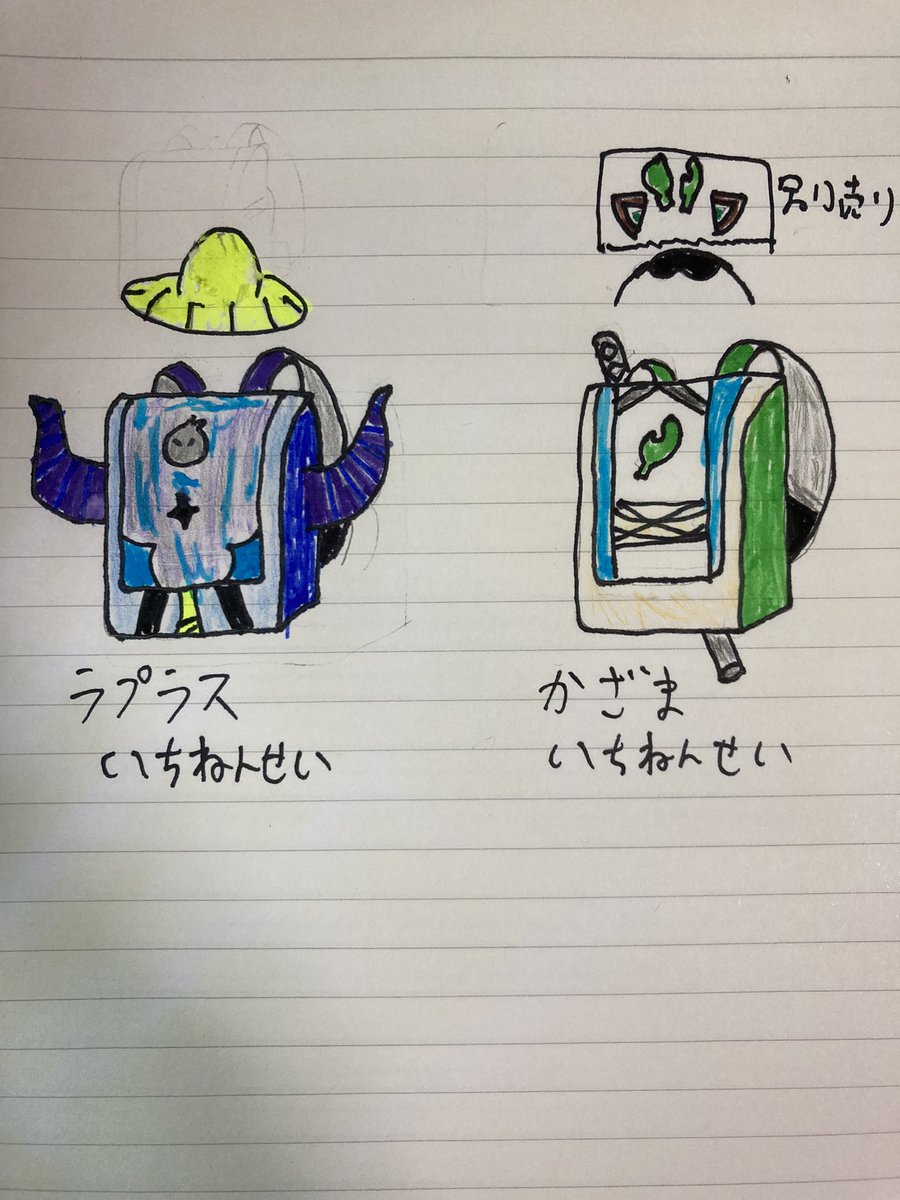 別り売り
ラプラス
いちねんせい
かざま
いちねんせい